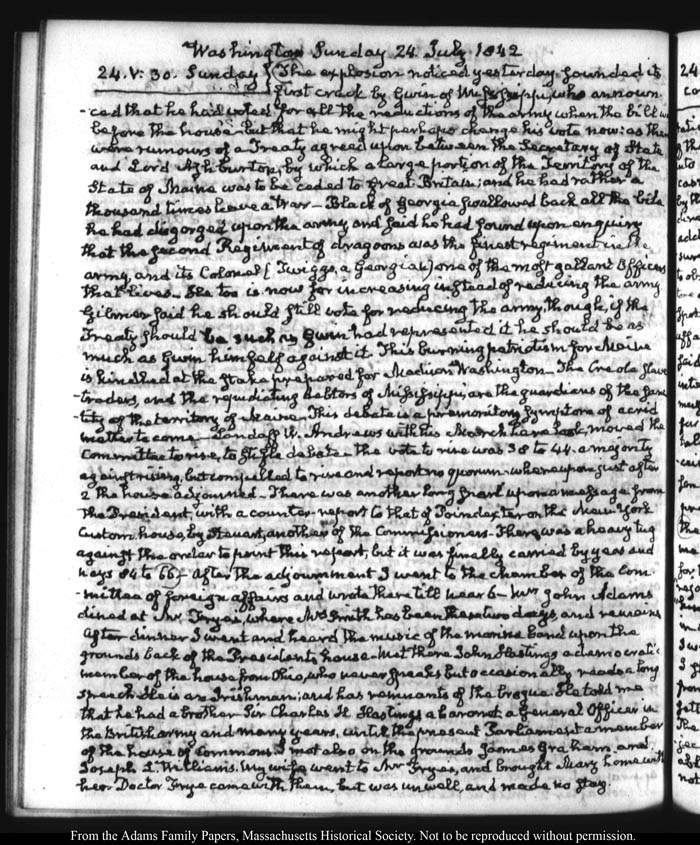 Washington Sunday 24 July 1842
24. V: 30. Sunday { The explosion noticed yesterday founded its
first crack by Gwin of Mississippi, who announ-
-ced that he had voted for all the reductions of the army when the bill was
before the house but that he might perhaps change his vote now: as there
were rumours of a Treaty agreed upon between the Secretary of State
and Lord Ashburton, by which a large portion of the Territory of the
State of Maine was to be ceded to Great Britain; and he had rather a
thousand times have a war_ Black of Georgia swallowed back all the bile
he had disgorged upon the army and said he had found upon enquiry
that the second Regiment of dragoons was the finest regiment in the
army, and its Colonel (Twiggs, a Georgian) one of the most gallant Officers
that lives_ He too is now for increasing instead of reducing the army
Gilmer said he should still vote for reducing the army, though, if the
Treaty should be such as Gwin had represented it he should be as
much as Gwin himself against it. This burning patriotism for Maine
is kindled at the stake prepared for Madison Washington_ The Creole slave
-traders, and the repudiating debtors of Mississippi, are the guardians of the sanc
-tity of the territory of Maine_ This debate is a premonitory symptom of acrid
matter to come_ Landaff W. Andrews with his March hare look, moved the
Committee to rise, to stifle debate_ The vote to rise was 38 to 44. a majority
against rising, but compelled to rise and report no quorum_ whereupon just after
2 the house adjourned_ There was another long snarl upon a message from
the President, with a counter-report to that of Poindexter on the New-York
Custom house, by Steuart, another of the Commissioners_ There was a heavy tug
against the order to print this report, but it was finally carried by yeas and
nays 84 to 66_ After the adjournment I went to the chamber of the Com
-mittee of foreign affairs and wrote there till near 6_ Mrs John Adams
dined at Mr Fryes, where Mrs Smith has been these two days, and remains
After dinner I went and heard the music of the marine band upon the
grounds back of the Presidents house_ Met there John Hastings a democratic
member of the house from Ohio, who never speaks but occasionally reads a long
speech. He is an Irishman; and has remnants of the brogue. He told me
that he had a brother Sir Charles H. Hastings a baronet a General Officer in
the British army and many years, until the present Parliament a member
of the house of Commons. I met also on the grounds James Graham, and
Joseph L. Williams. My wife went to Mr Fryes, and brought Mary home with
her. Doctor Frye came with them, but was unwell, and made no stay.
From the Adams Family Papers, Massachusetts Historical Society. Not to be reproduced without permission.